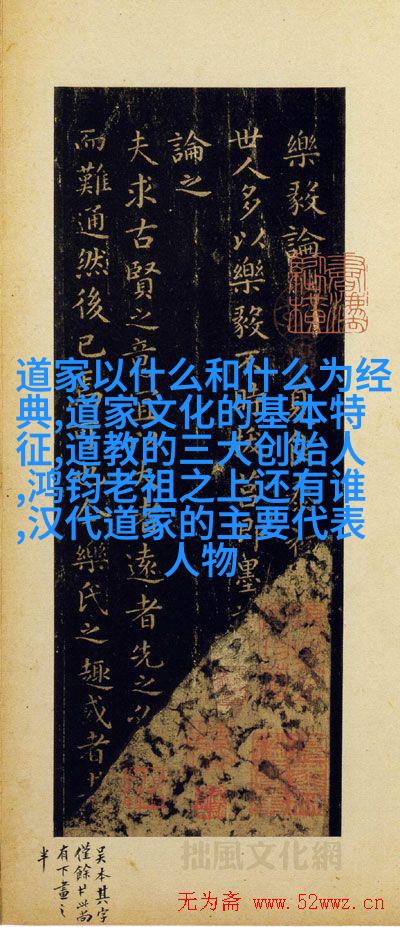 樂毅論
世人多以樂毅不時拔莒即墨
論之
夫求古賢之意
遠者先之
而難通然後已焉
樂氏之趣或者
道家以什么和什么为经
典,道家文化的基本特
征,道教的三大创始人
,鸿钧老祖之上还有谁
,汉代道家的主要代表
人物
吴本其字
僅餘止此尚
有下畫之
半
拙風文化網
无为斋 www.52wwz.cn